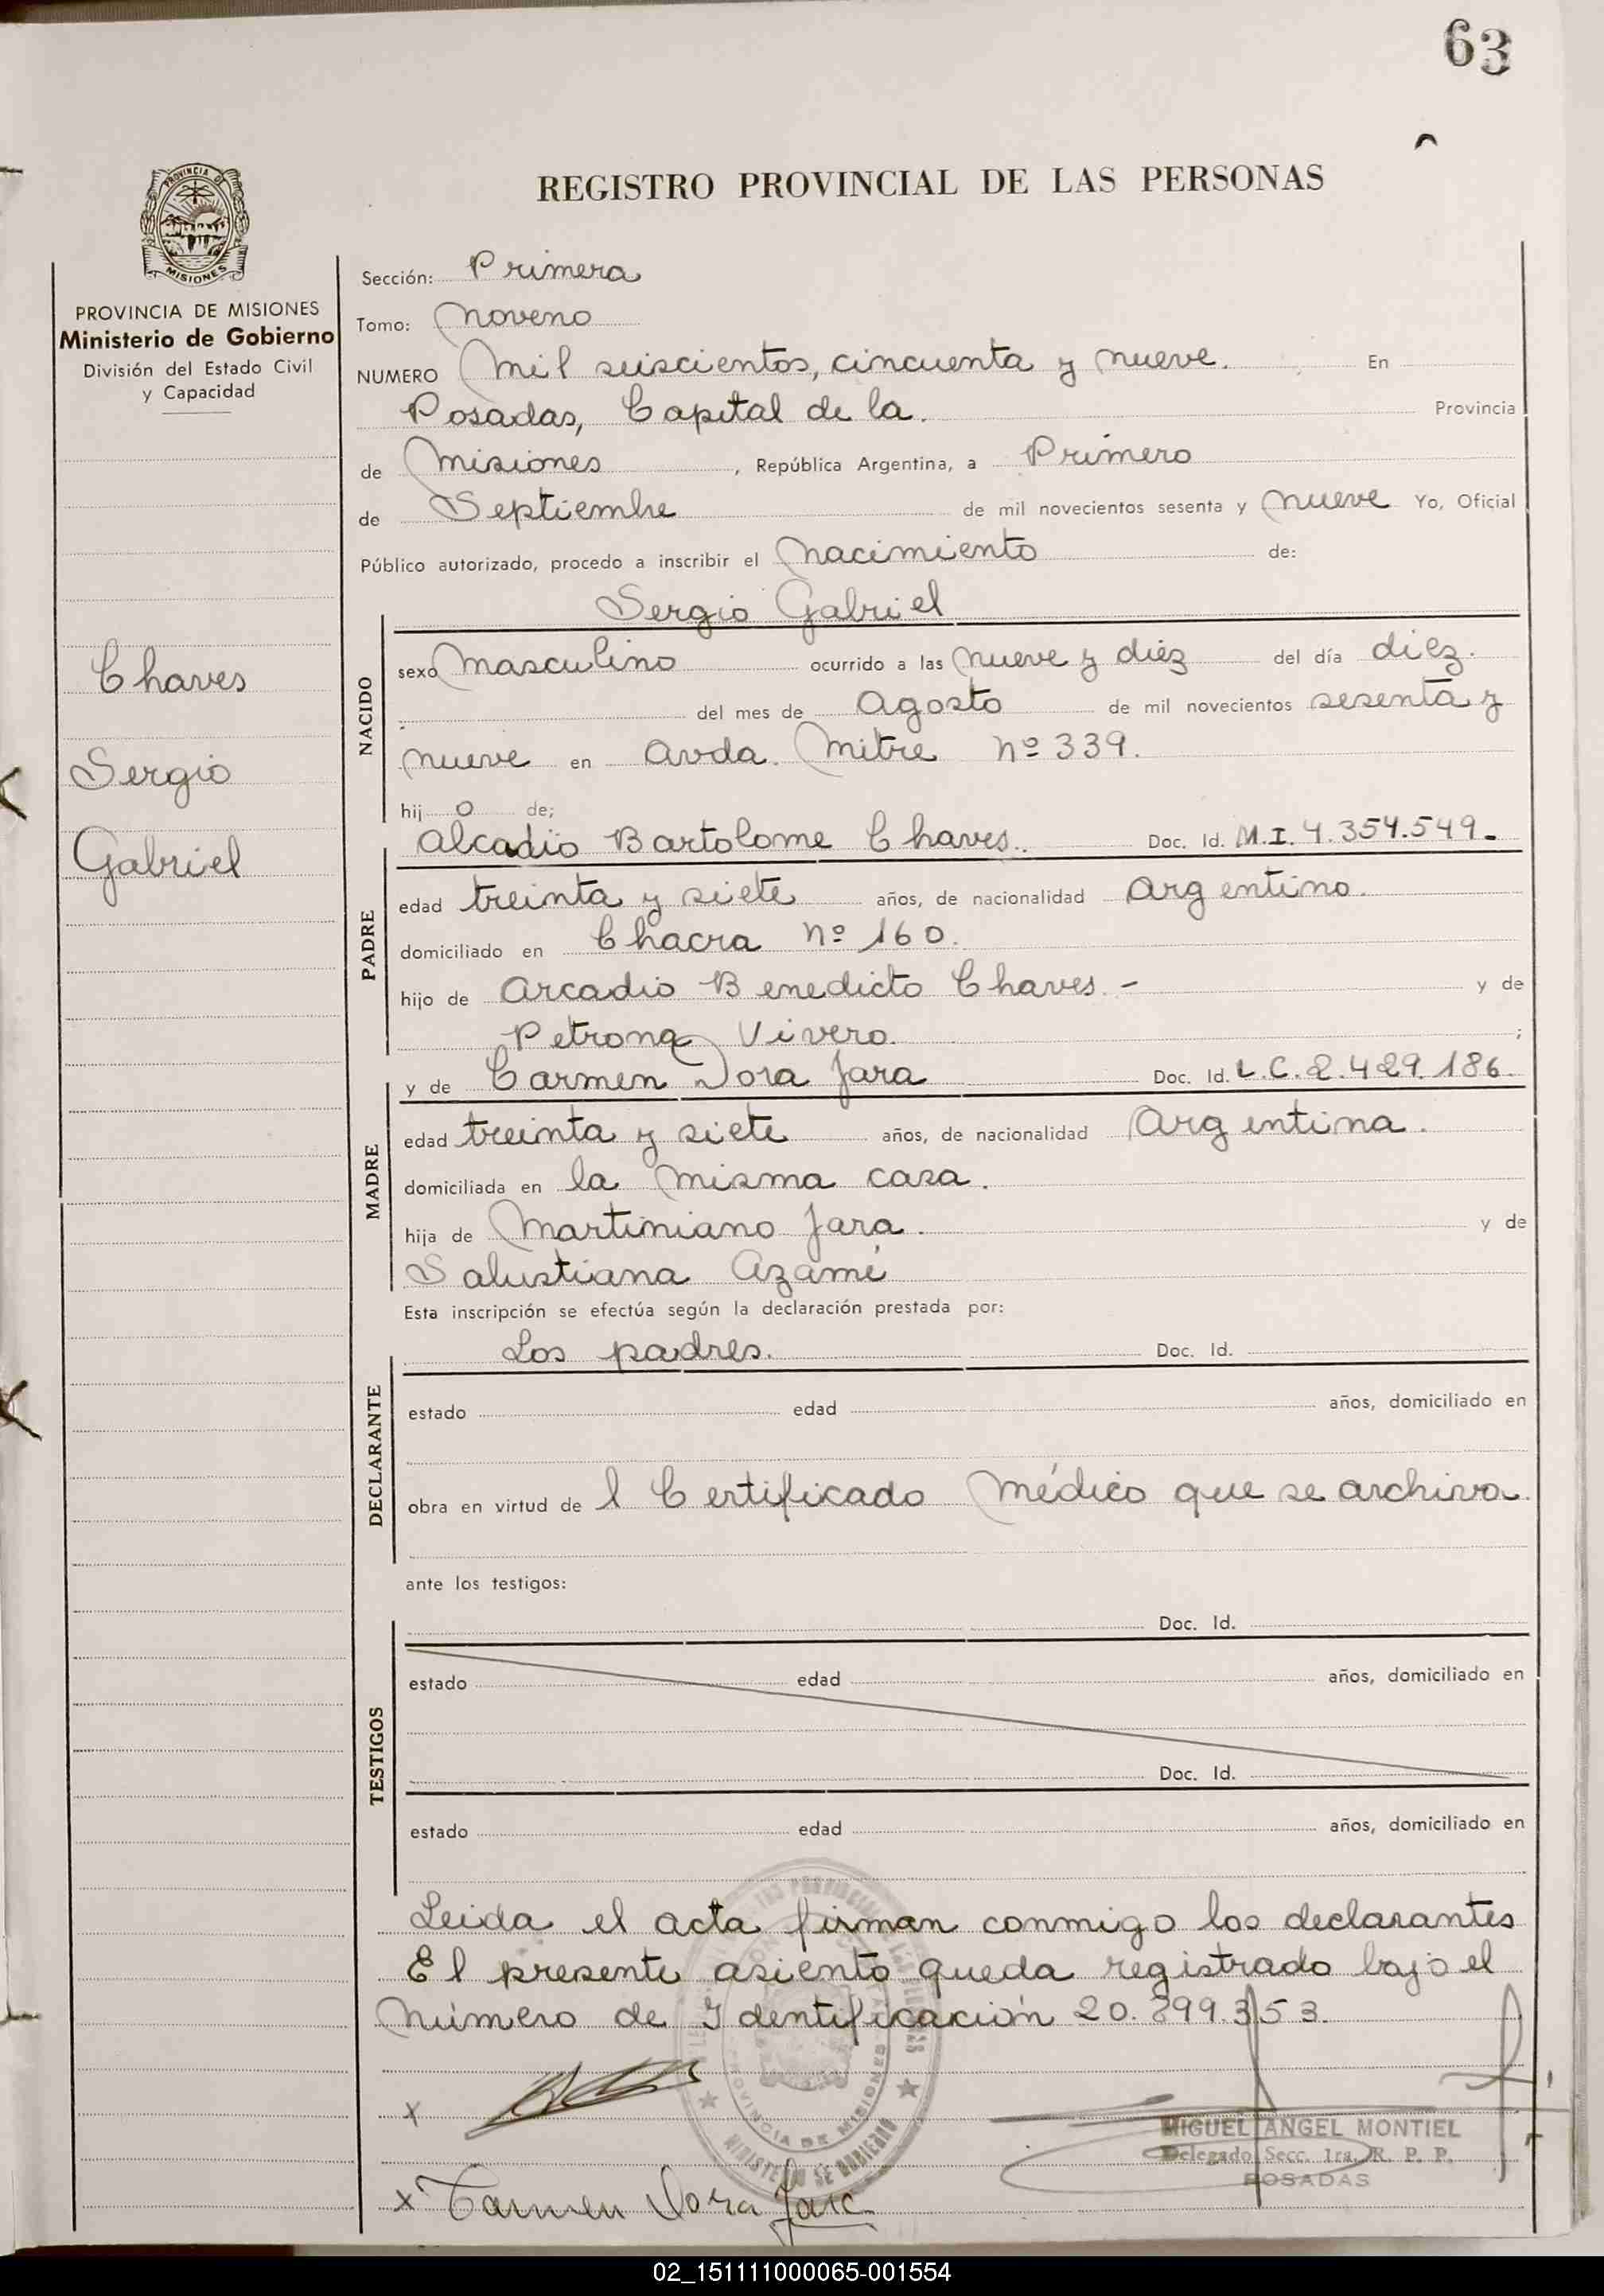 63
REGISTRO PROVINCIAL DE LAS PERSONAS
PROVINCIA DE MISIONES
Ministerio de Gobierno
División del Estado Civil
y Capacidad
Chaves
Sergio
Gabriel
Sección: Primera
Tomo: Noveno
NUMERO Mil seiscientos, cincuenta y nueve. En
Posadas, Capital de la. Provincia
de Misiones, República Argentina, a Primero
de Septiembre de mil novecientos sesenta y nueve Yo, Oficial
Público autorizado, procedo a inscribir el Nacimiento de:
Sergio Gabriel
NACIDO
sexo Masculino ocurrido a las nueve y diez del día diez.
del mes de Agosto de mil novecientos sesenta y
nueve en Avda. Mitre nº 339.
hij o de;
Alcadio Bartolome Chaves. Doc. Id. M.I. 7.354.549.-
PADRE
edad treinta y siete años, de nacionalidad Argentino.
domiciliado en Chacra nº 160.
hijo de Arcadio Benedicto Chaves.- y de
Petrona Vivero. ;
y de Carmen Dora Jara Doc. Id. L.C. 2.429.186.
MADRE
edad treinta y siete años, de nacionalidad Argentina.
domiciliada en la misma casa.
hija de Martiniano Jara. y de
Salustiana Azamé
Esta inscripción se efectúa según la declaración prestada por:
Los padres. Doc. Id.
DECLARANTE
estado edad años, domiciliado en
obra en virtud de l Certificado Médico que se archiva.
ante los testigos:
Doc. Id.
TESTIGOS
estado edad años, domiciliado en
Doc. Id.
estado edad años, domiciliado en
Leida el acta firman conmigo los declarantes
El presente asiento queda registrado bajo el
número de Identificación 20.899.353.
x
MIGUEL ANGEL MONTIEL
Delegado Secc. 1ra. R. P. P.
POSADAS
x Carmen Dora Jara
PROVINCIA DE MISIONES
MINISTERIO DE GOBIERNO
02_151111000065-001554